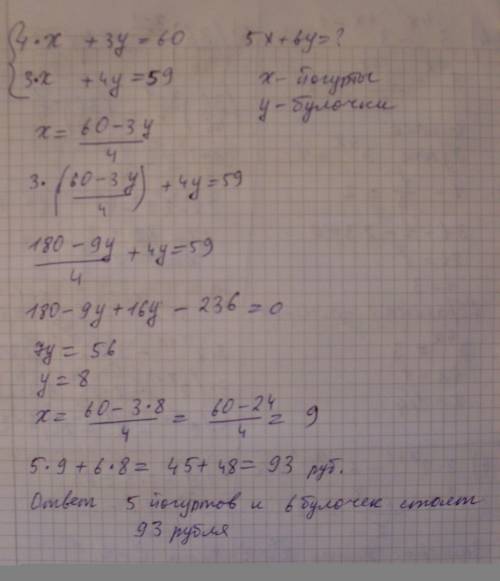 { 4·x + 3y = 60     5x + 6y = ?
3·x + 4y = 59     x - йогурты
y - булочки
x = (60 - 3y)/4
3·((60 - 3y)/4) + 4y = 59
(180 - 9y)/4 + 4y = 59
180 - 9y + 16y - 236 = 0
7y = 56
y = 8
x = (60 - 3·8)/4 = (60 - 24)/4 = 9
5·9 + 6·8 = 45 + 48 = 93 руб.
Ответ 5 йогуртов и 6 булочек стоят
93 рубля